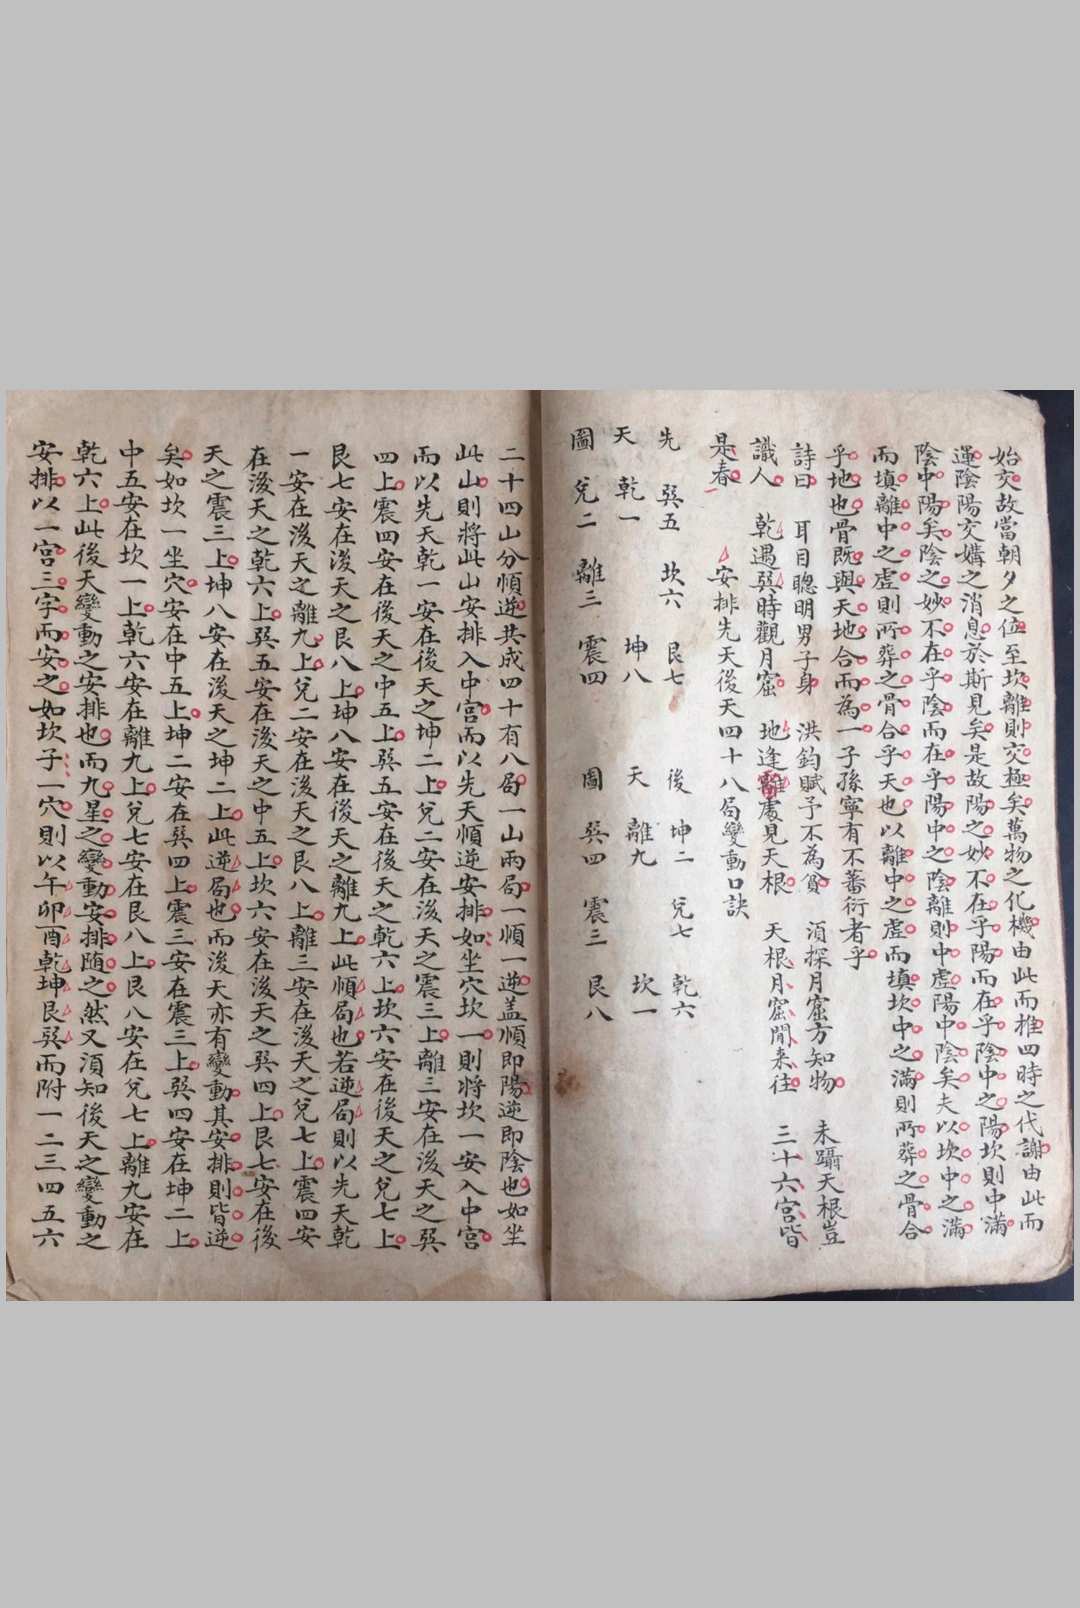 始交故當朝夕之位至坎離則交極矣萬物之化機由此而推四時之代謝由此而
運陰陽交媾之消息於斯見矣是故陽之妙不在乎陽而在乎陰中之陽坎則中滿
陰中陽矣陰之妙不在乎陰而在乎陽中之陰離則中虛陽中陰矣夫以坎中之滿
而填離中之虛則所葬之骨合乎天也以離中之虛而填坎中之滿則所葬之骨合
乎地也骨既與天地合而為一子孫寧有不蕃衍者乎
詩曰 耳目聰明男子身 洪鈞賦予不為貧 須探月窟方知物 未躡天根豈
識人 乾遇巽時觀月窟 地逢處見天根 天根月窟閒来往 三十六宮皆
是春
安排先天後天四十八局變動口訣
先 巽五 坎六 艮七
天 乾一 坤八
圖 兌二 離三 震四
後 坤二 兌七 乾六
天 離九 坎一
圖 巽四 震三 艮八
二十四山分順逆共成四十有八局一山兩局一順一逆盖順即陽逆即陰也如坐
此山則將此山安排入中宮而以先天順逆安排如坐穴坎一則將坎一安入中宮
而以先天乾一安在後天之坤二上兌二安在後天之震三上離三安在後天之巽
四上震四安在後天之中五上巽五安在後天之乾六上坎六安在後天之兌七上
艮七安在後天之艮八上坤八安在後天之離九上此順局也若逆局則以先天乾
一安在後天之離九上兌二安在後天之艮八上離三安在後天之兌七上震四安
在後天之乾六上巽五安在後天之中五上坎六安在後天之巽四上艮七安在後
天之震三上坤八安在後天之坤二上此逆局也而後天亦有變動其安排則皆逆
矣如坎一坐穴安在中五上坤二安在巽四上震三安在震三上巽四安在坤二上
中五安在坎一上乾六安在離九上兌七安在艮八上艮八安在兌七上離九安在
乾六上此後天變動之安排也而九星之變動安排随之然又須知後天之變動之
安排以一宮三字而安之如坎子一穴則以午卯酉乾坤艮巽而附一二三四五六